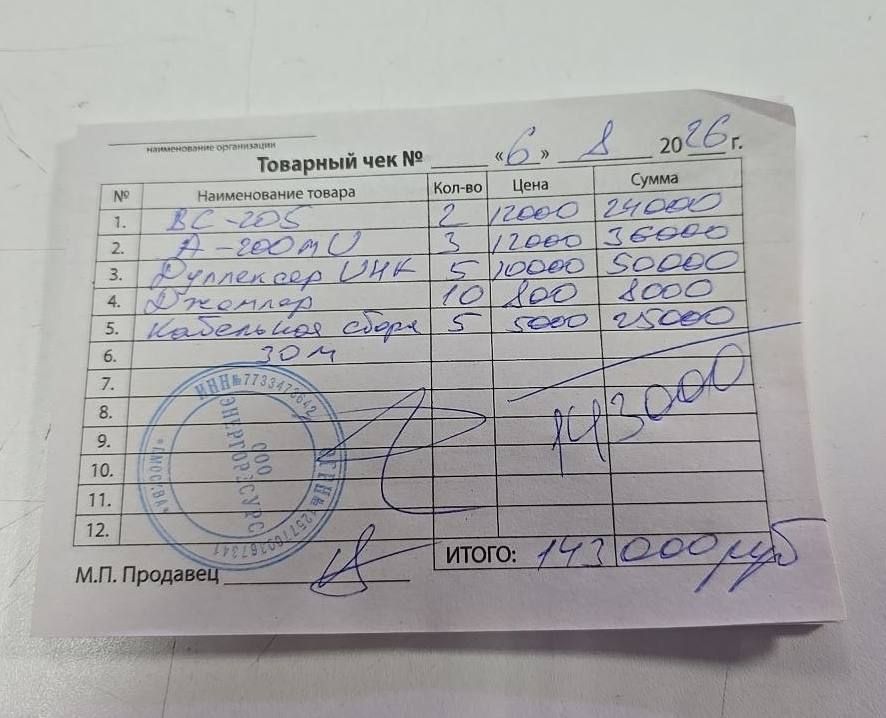 наименование организации
Товарный чек № «6» 8 2026 г.
№ Наименование товара Кол-во Цена Сумма
1. ВС-205 2 12000 24000
2. А-200 МU 3 12000 36000
3. Дуплексер UHK 5 10000 50000
4. Джемпер 10 800 8000
5. Кабельная сборка 5 5000 25000
6. 30 м
7.
8.
9.
10.
11.
12.
143000
ИНН№7733473642
ООО
ЭНЕРГОРЕСУРС
*МОСКВА*
ИТОГО: 143 000 руб
М.П. Продавец